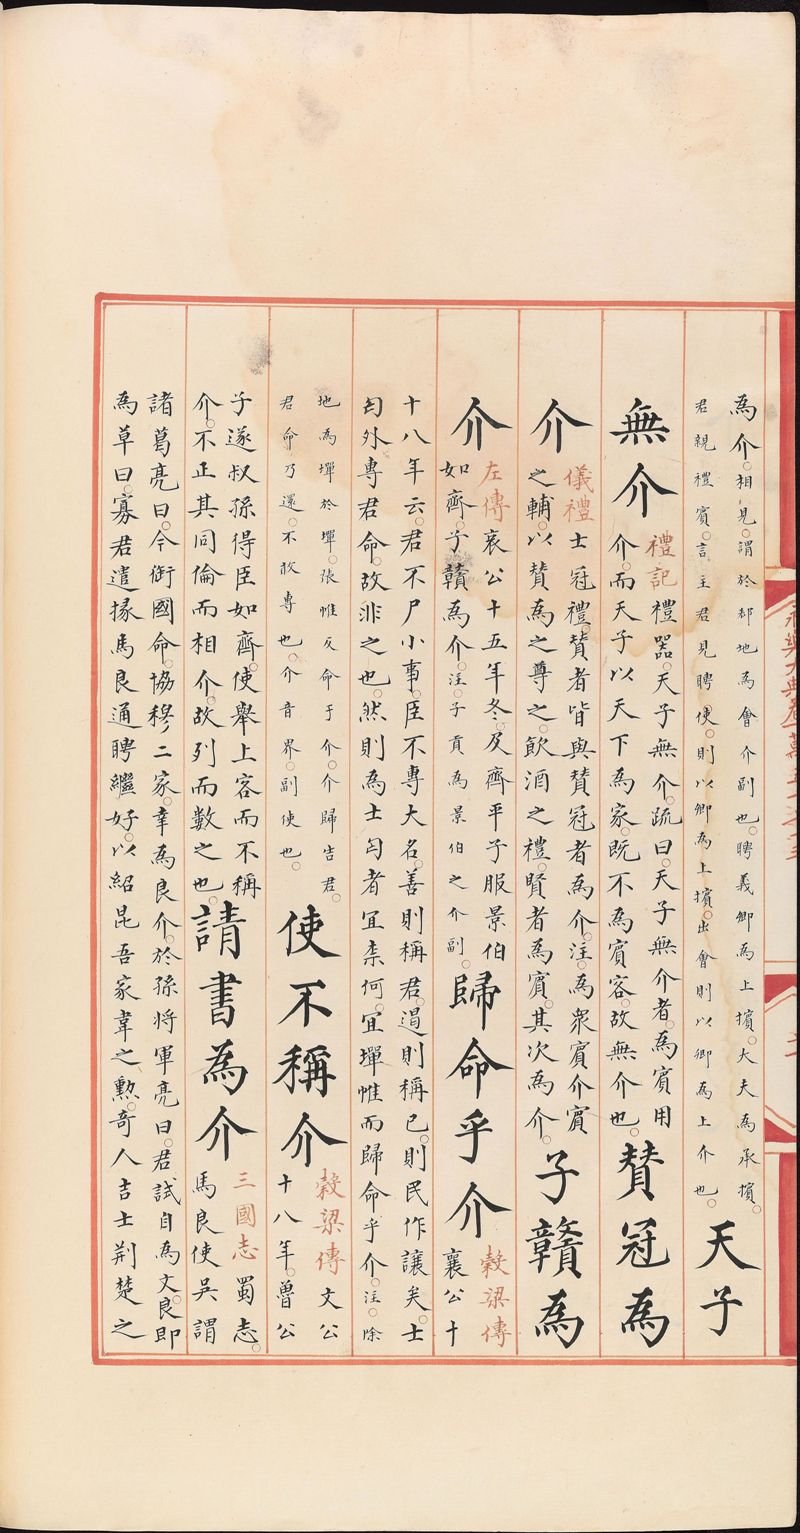 為介。相見。謂於郤地為會介副也。聘義卿為上擯。大夫為承擯。
君親禮賓。言主君見聘使。則以卿為上擯。出會則以卿為上介也。
天子
無介
禮記禮器。天子無介。疏曰。天子無介者。為賓用
介。而天子以天下為家。既不為賓客。故無介也。
賛冠為
介
儀禮士冠禮。賛者皆與賛冠者為介。注。為衆賓介賓
之輔。以賛為之尊之。飲酒之禮。賢者為賓。其次為介。
子贛為
介
左傳哀公十五年冬。及齊平子服景伯
如齊。子贛為介。注。子貢為景伯之介副。
歸命乎介
穀梁傳
襄公十
十八年云。君不尸小事。臣不專大名。善則稱君。過則稱己。則民作讓矣。士
匄外專君命。故非之也。然則為士匄者冝柰何。冝墠帷而歸命乎介。注。除
地為墠於墠。張帷反命于介。介歸告君。
君命乃還。不敢專也。介音界。副使也。
使不稱介
穀梁傳文公
十八年。魯公
子遂叔孫得臣如齊。使舉上客而不稱
介。不正其同倫而相介。故列而數之也。
請書為介
三國志蜀志。
馬良使吳謂
諸葛亮曰。今銜國命。協穆二家。幸為良介。於孫將軍亮曰。君試自為文。良即
為草曰。寡君遣掾馬良通聘繼好。以紹昆吾家韋之勲。奇人吉士荆楚之